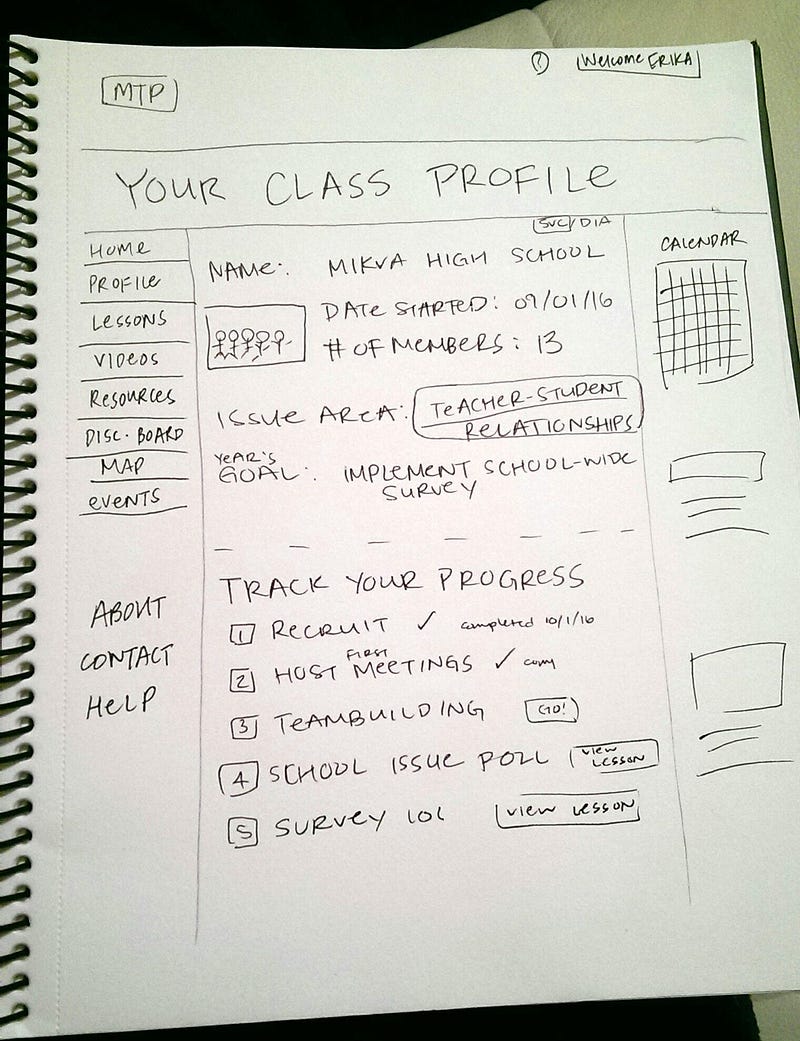 ?
Welcome ERIKA
MTP
YOUR CLASS PROFILE
SVC/DIA
HOME
PROFILE
LESSONS
VIDEOS
RESOURCES
DISC. BOARD
MAP
EVENTS
ABOUT
CONTACT
HELP
NAME: MIKVA HIGH SCHOOL
DATE STARTED: 09/01/16
# OF MEMBERS: 13
ISSUE AREA: TEACHER-STUDENT
RELATIONSHIPS
YEAR'S
GOAL: IMPLEMENT SCHOOL-WIDE
SURVEY
TRACK YOUR PROGRESS
1 RECRUIT ✓ completed 10/1/16
2 HOST FIRST MEETINGS ✓ com
3 TEAMBUILDING GO!
4 SCHOOL ISSUE POLL VIEW
LESSON
5 SURVEY 101 VIEW LESSON
CALENDAR